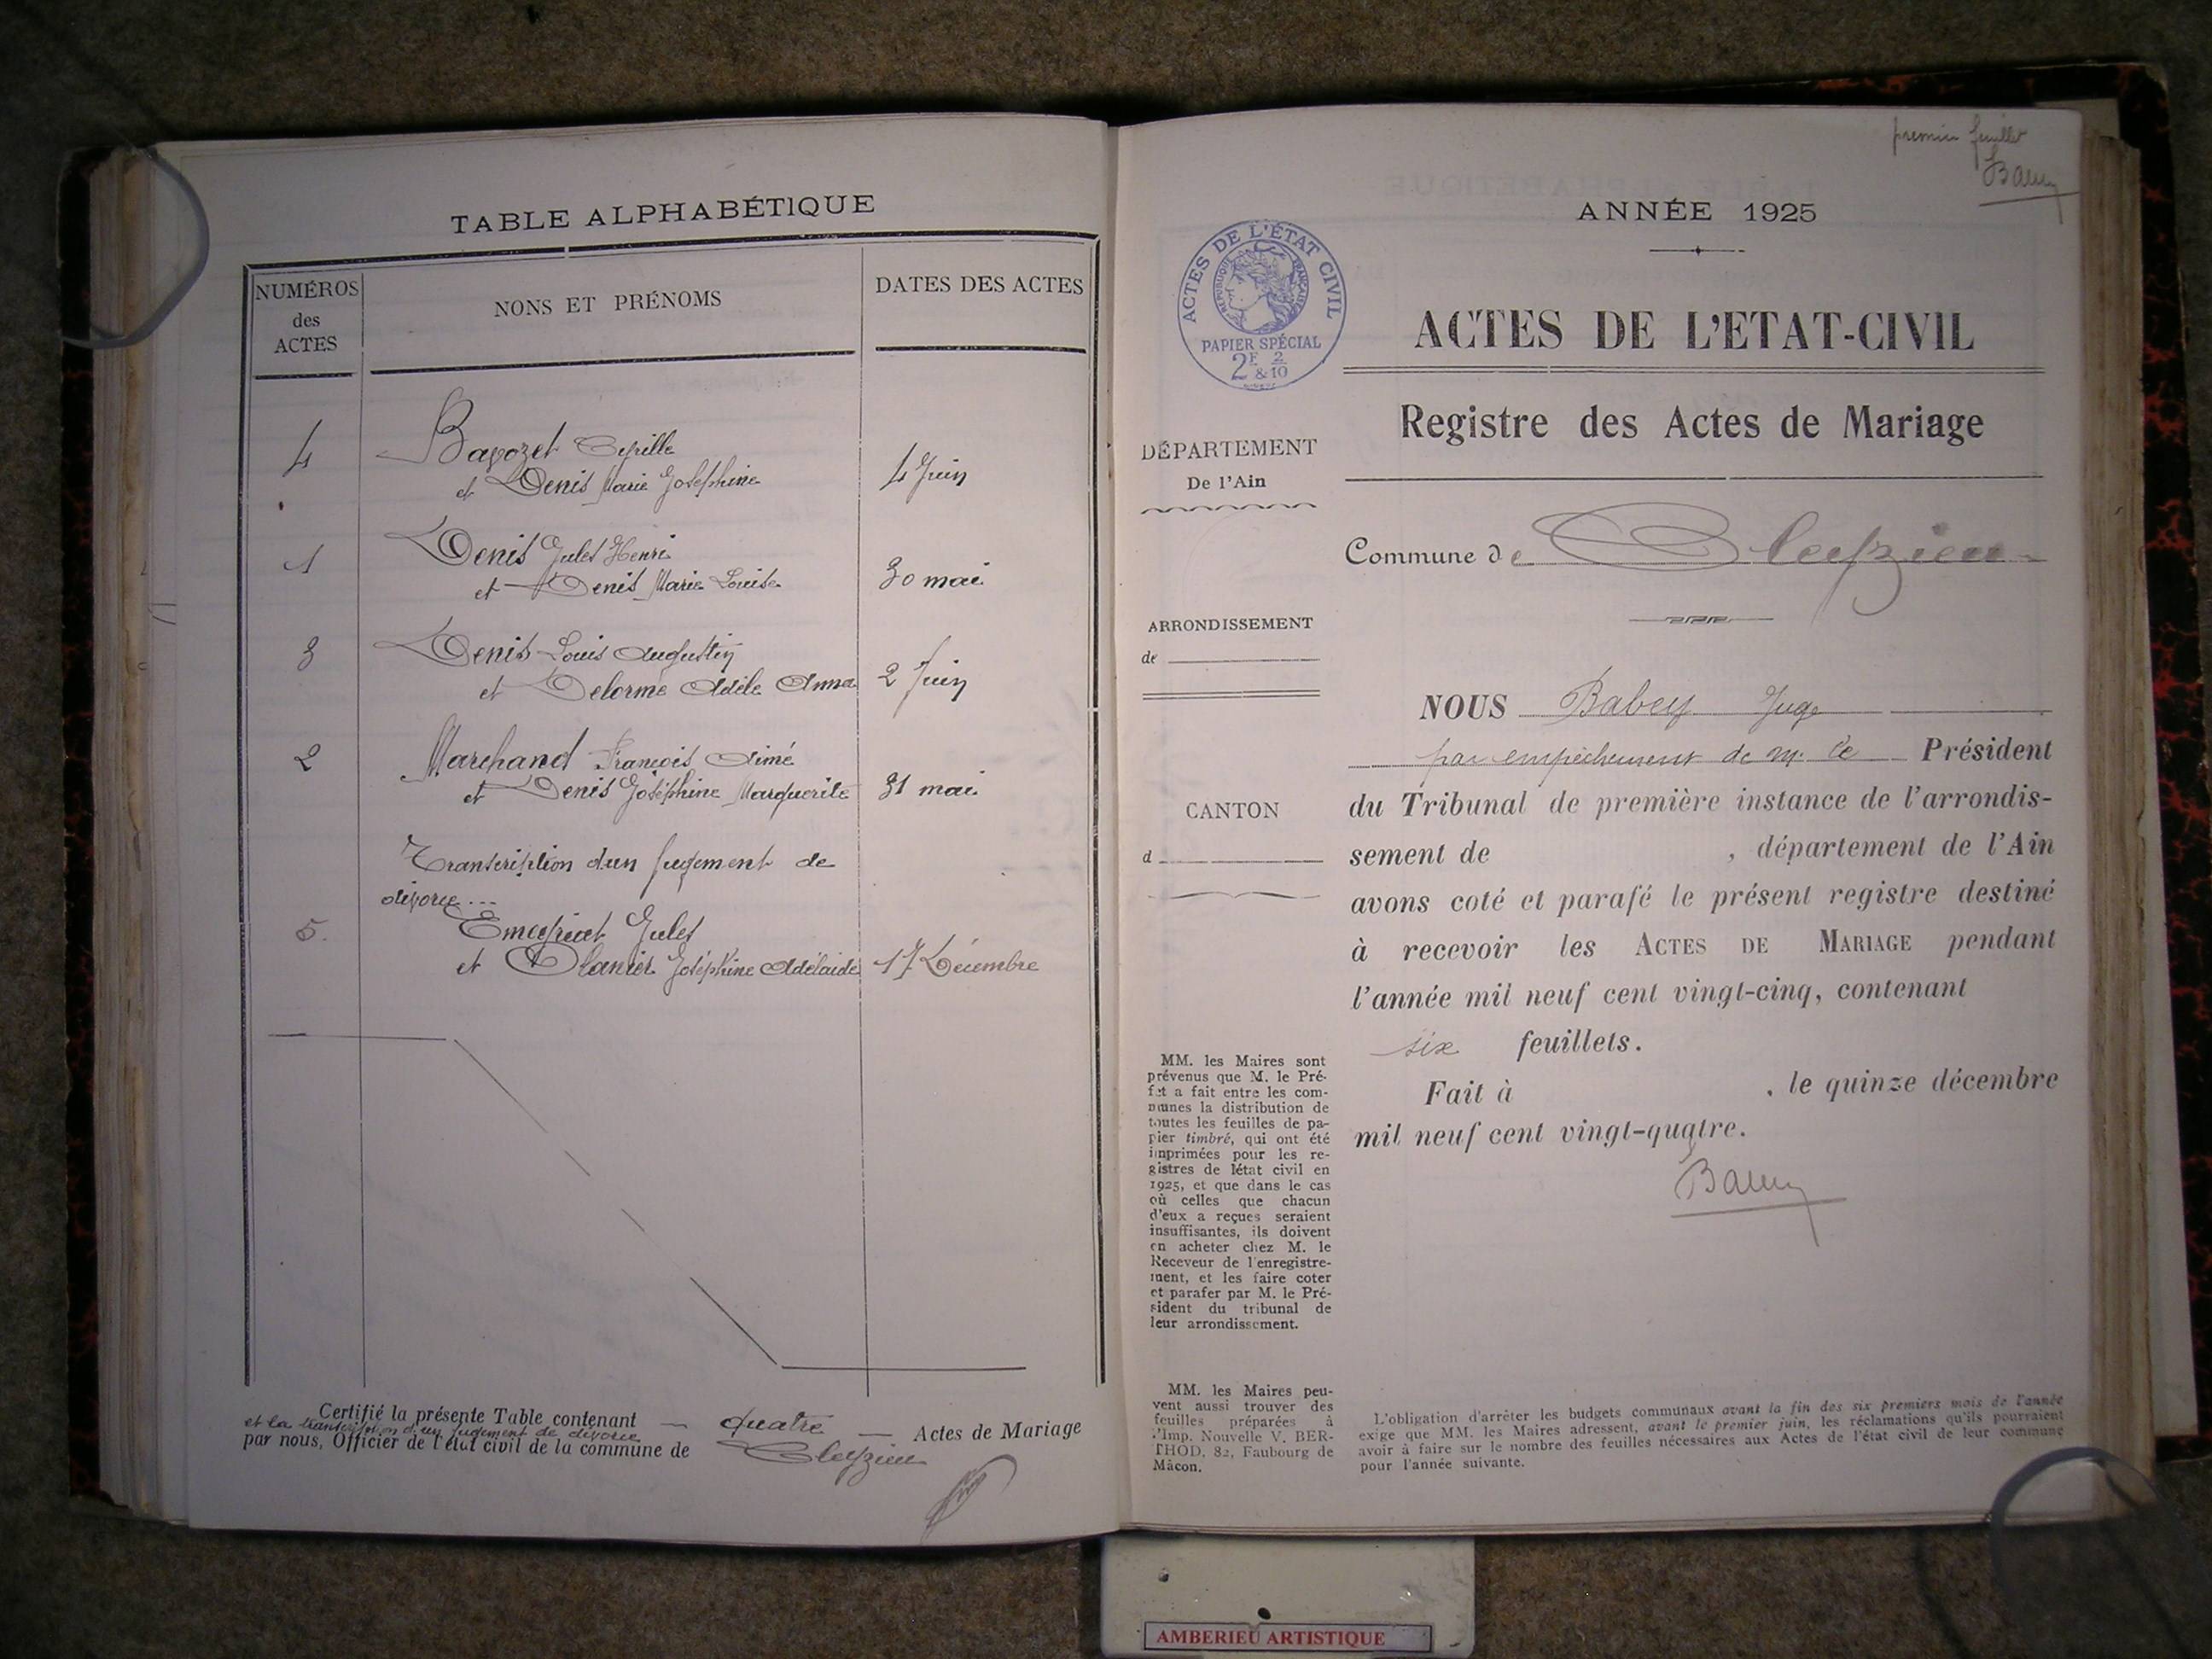 TABLE ALPHABÉTIQUE
NUMÉROS
des
ACTES
NONS ET PRÉNOMS
DATES DES ACTES
4
Bavozet Cyrille
et Denis Marie Joséphine
4 Juin
1
Denis Jules Henri
et Denis Marie Louise
30 mai
3
Denis Louis Augustin
et Delorme Adèle Anna
2 Juin
2
Marchand François Aimé
et Denis Joséphine Marguerite
31 mai
Transcription d'un jugement de
divorce...
5.
Jules
et Joséphine Adélaïde
17 Décembre
Certifié la présente Table contenant — quatre — Actes de Mariage
et la transcription d'un jugement de divorce
par nous, Officier de l'état civil de la commune de Cleyzieu
premier feuillet
ANNÉE 1925
ACTES DE L'ÉTAT CIVIL
RÉPUBLIQUE FRANÇAISE
PAPIER SPÉCIAL
2F & 2/10
ACTES DE L'ETAT-CIVIL
Registre des Actes de Mariage
DÉPARTEMENT
De l'Ain
Commune de Cleyzieu
ARRONDISSEMENT
de
CANTON
d
NOUS Babey Juge
par empêchement de M. le Président
du Tribunal de première instance de l'arrondis-
sement de , département de l'Ain
avons coté et parafé le présent registre destiné
à recevoir les ACTES DE MARIAGE pendant
l'année mil neuf cent vingt-cinq, contenant
six feuillets.
Fait à , le quinze décembre
mil neuf cent vingt-quatre.
MM. les Maires sont
prévenus que M. le Pré-
fet a fait entre les com-
munes la distribution de
toutes les feuilles de pa-
pier timbré, qui ont été
imprimées pour les re-
gistres de létat civil en
1925, et que dans le cas
où celles que chacun
d'eux a reçues seraient
insuffisantes, ils doivent
en acheter chez M. le
Receveur de l'enregistre-
ment, et les faire coter
et parafer par M. le Pré-
sident du tribunal de
leur arrondissement.
MM. les Maires peu-
vent aussi trouver des
feuilles préparées à
l'Imp. Nouvelle V. BER-
THOD, 82, Faubourg de
Mâcon.
L'obligation d'arrêter les budgets communaux avant la fin des six premiers mois de l'année
exige que MM. les Maires adressent, avant le premier juin, les réclamations qu'ils pourraient
avoir à faire sur le nombre des feuilles nécessaires aux Actes de l'état civil de leur commune
pour l'année suivante.
AMBERIEU ARTISTIQUE